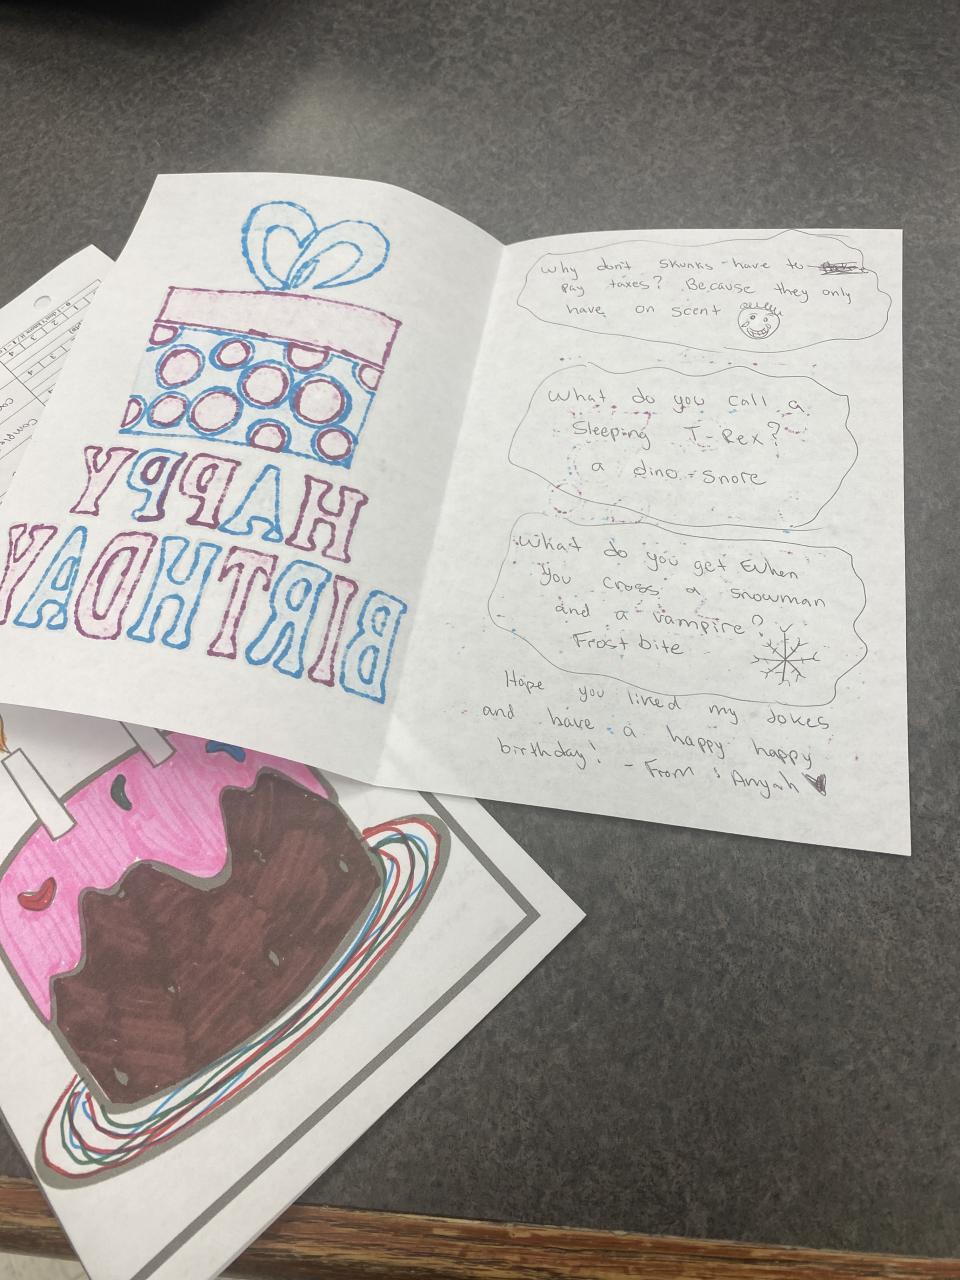 HAPPY
BIRTHDAY
why don't skunks have to
pay taxes? Because they only
have on scent
What do you call a
Sleeping T-Rex?
a dino-snore
What do you get When
You cross a snowman
and a vampire?
Frost bite
Hope you liked my Jokes
and have a happy happy
birthday! - From : Anyah